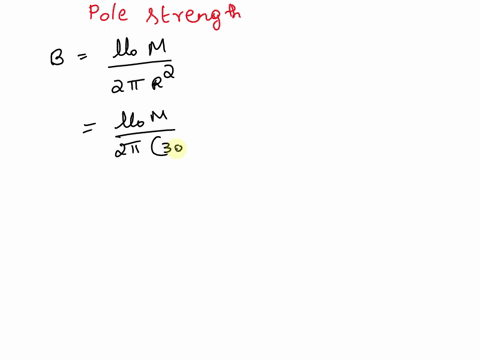 Pole strength
B = μ₀ M / 2π R²
= μ₀ M / 2π (30